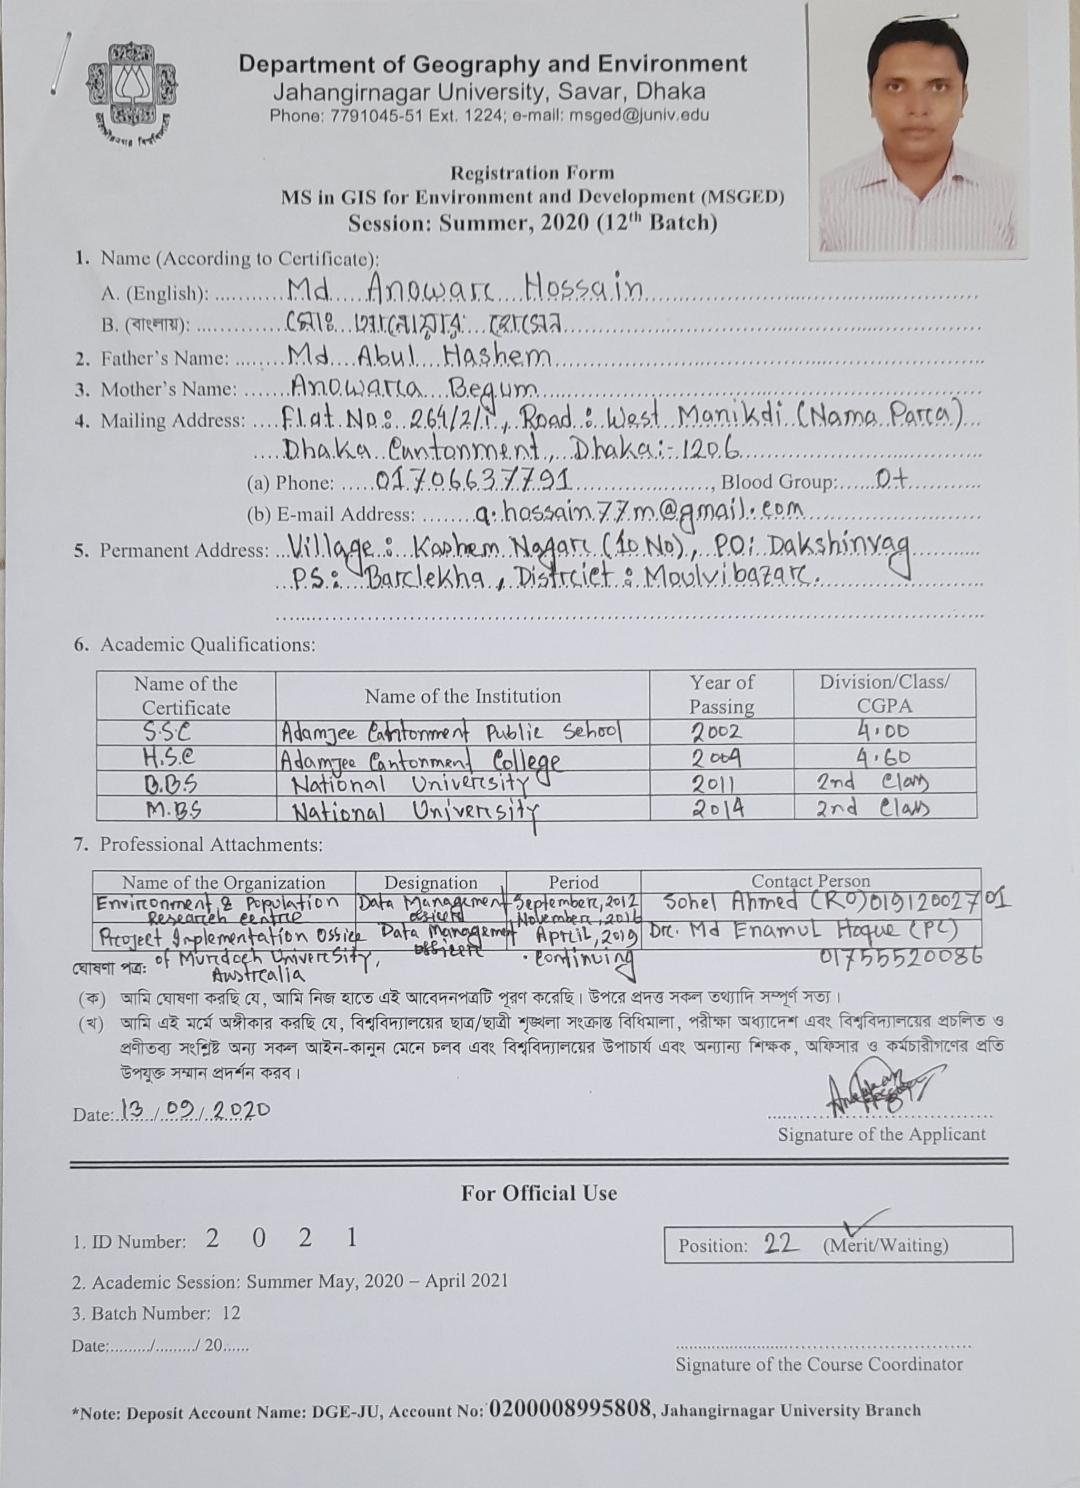 Department of Geography and Environment
Jahangirnagar University, Savar, Dhaka
Phone: 7791045-51 Ext. 1224; e-mail: msged@juniv.edu
Registration Form
MS in GIS for Environment and Development (MSGED)
Session: Summer, 2020 (12th Batch)
1. Name (According to Certificate):
A. (English): Md Anowar Hossain
B. (বাংলায়): মোঃ আনোয়ার হোসেন
2. Father's Name: Md Abul Hashem
3. Mother's Name: Anowara Begum
4. Mailing Address: Flat No: 264/2/1, Road: West Manikdi (Nama Para)
Dhaka Cantonment, Dhaka:-1206
(a) Phone: 01706637791, Blood Group: O+
(b) E-mail Address: a.hossain77m@gmail.com
5. Permanent Address: Village: Kashem Nagar (10 No), PO: Dakshinvag
P.S: Barlekha, District: Moulvibazar.
6. Academic Qualifications:
Name of the Certificate Name of the Institution Year of Passing Division/Class/CGPA
S.S.C Adamjee Cantonment Public School 2002 4.00
H.S.C Adamjee Cantonment College 2004 4.60
B.B.S National University 2011 2nd Class
M.B.S National University 2014 2nd Class
7. Professional Attachments:
Name of the Organization Designation Period Contact Person
Environment & Population Research Centre Data Management officer September, 2012 November, 2016 Sohel Ahmed (RO) 01912002701
Project Implementation Office of Murdoch University, Australia Data Management officer April, 2019 - Continuing Dr. Md Enamul Hoque (PC) 01755520086
ঘোষণা পত্র:
(ক) আমি ঘোষণা করছি যে, আমি নিজ হাতে এই আবেদনপত্রটি পূরণ করেছি। উপরে প্রদত্ত সকল তথ্যাদি সম্পূর্ণ সত্য।
(খ) আমি এই মর্মে অঙ্গীকার করছি যে, বিশ্ববিদ্যালয়ের ছাত্র/ছাত্রী শৃঙ্খলা সংক্রান্ত বিধিমালা, পরীক্ষা অধ্যাদেশ এবং বিশ্ববিদ্যালয়ের প্রচলিত ও
প্রণীতব্য সংশ্লিষ্ট অন্য সকল আইন-কানুন মেনে চলব এবং বিশ্ববিদ্যালয়ের উপাচার্য এবং অন্যান্য শিক্ষক, অফিসার ও কর্মচারীগণের প্রতি
উপযুক্ত সম্মান প্রদর্শন করব।
Date: 13/09/2020
Signature of the Applicant
For Official Use
1. ID Number: 2 0 2 1
Position: 22 (Merit/Waiting)
2. Academic Session: Summer May, 2020 – April 2021
3. Batch Number: 12
Date:........./........./ 20......
Signature of the Course Coordinator
*Note: Deposit Account Name: DGE-JU, Account No: 0200008995808, Jahangirnagar University Branch